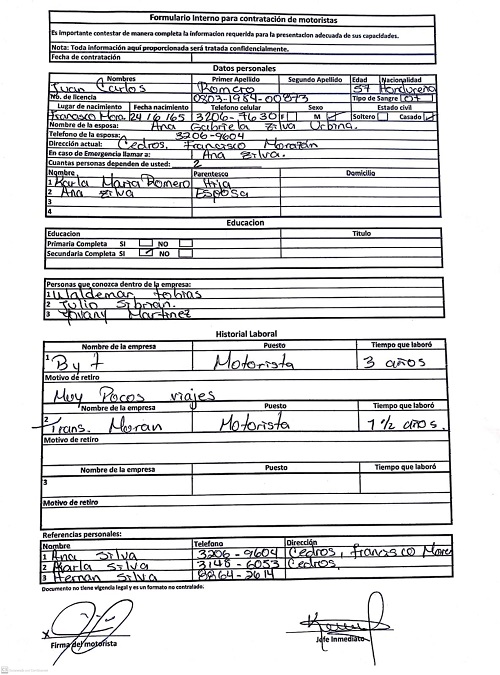 Formulario Interno para contratación de motoristas
Es importante contestar de manera completa la informacion requerida para la presentacion adecuada de sus capacidades.
Nota: Toda información aquí proporcionada será tratada confidencialmente.
Fecha de contratación
Datos personales
Nombres Primer Apellido Segundo Apellido Edad Nacionalidad
Juan Carlos Romero 57 Hondureña
No. de licencia 0803-1984-00873 Tipo de Sangre O+
Lugar de nacimiento Fecha nacimiento Telefono celular Sexo Estado civil
Francisco Mora. 24 16 165 3206-7630 F M Soltero Casado
Nombre de la esposa: Ana Gabriela Zilva Urbina.
Telefono de la esposa: 3206-9604
Dirección actual: Cedros, Francisco Morazán
En caso de Emergencia llamar a: Ana Silva.
Cuantas personas dependen de usted: 2
Nombre Parentesco Domicilio
1 Karla Maria Romero Hija
2 Ana Silva Esposa
3
4
Educacion
Educacion Titulo
Primaria Completa SI NO
Secundaria Completa SI NO
Personas que conozca dentro de la empresa:
1 Waldemar Tobias
2 Julio Sibrian.
3 Martinez
Historial Laboral
Nombre de la empresa Puesto Tiempo que laboró
1 B y T Motorista 3 años
Motivo de retiro
Muy Pocos viajes
Nombre de la empresa Puesto Tiempo que laboró
2 Trans. Moran Motorista 1 1/2 años.
Motivo de retiro
Nombre de la empresa Puesto Tiempo que laboró
3
Motivo de retiro
Referencias personales:
Nombre Telefono Dirección
1 Ana Silva 3206-9604 Cedros, Francisco More
2 Karla Silva 3148-6053 Cedros,
3 Hernan Silva 8864-2614
Documento no tiene vigencia legal y es un formato no contralado.
Firma del motorista Jefe Inmediato